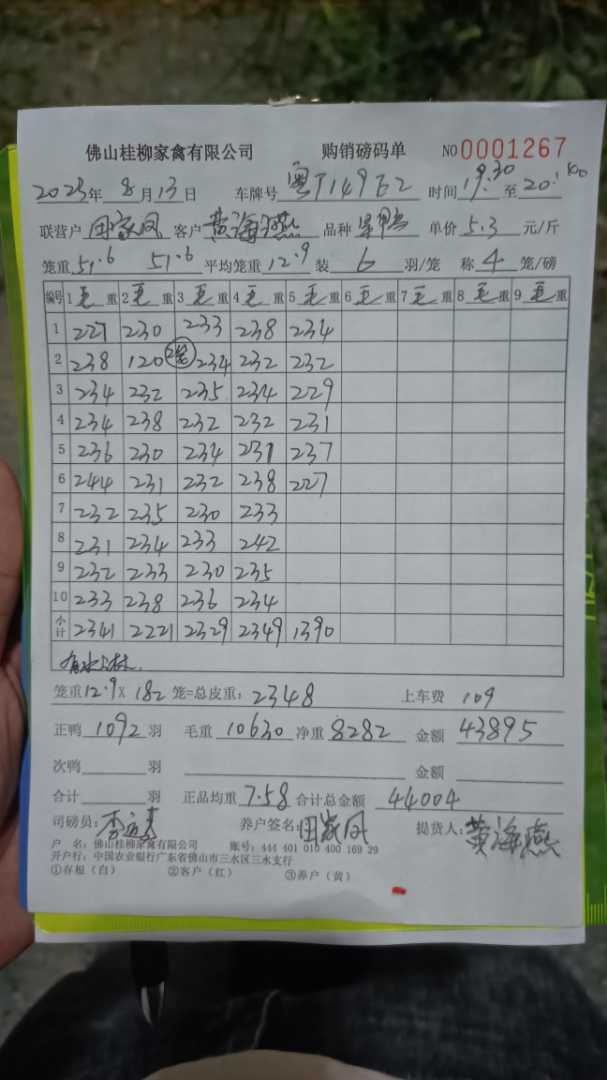 佛山桂柳家禽有限公司 购销磅码单 NO 0001267
2025年 8月13日 车牌号 粤T14962 时间 19:30 至 20:00
联营户 田家凤 客户 黄海燕 品种 单价 5.3 元/斤
笼重 51.6 51.6 平均笼重 12.9 装 6 羽/笼 称 4 笼/磅
编号 1 毛重 2 毛重 3 毛重 4 毛重 5 毛重 6 毛重 7 毛重 8 毛重 9 毛重
1 227 230 233 238 234
2 238 120 2笼 234 232 232
3 234 232 235 234 229
4 234 238 232 232 231
5 236 230 234 231 237
6 244 231 232 238 227
7 232 235 230 233
8 231 234 233 242
9 232 233 230 235
10 233 238 236 234
小计 2341 2221 2329 2349 1390
有水
笼重 12.9 X 182 笼=总皮重: 2348 上车费 109
正鸭 1092 羽 毛重 10630 净重 8282 金额 43895
次鸭 羽 金额
合计 羽 正品均重 7.58 合计总金额 44004
司磅员: 李 养户签名: 田家凤 提货人: 黄海燕
户 名: 佛山桂柳家禽有限公司 账号: 444 401 010 400 169 29
开户行: 中国农业银行广东省佛山市三水区三水支行
①存根(白) ②客户(红) ③养户(黄)